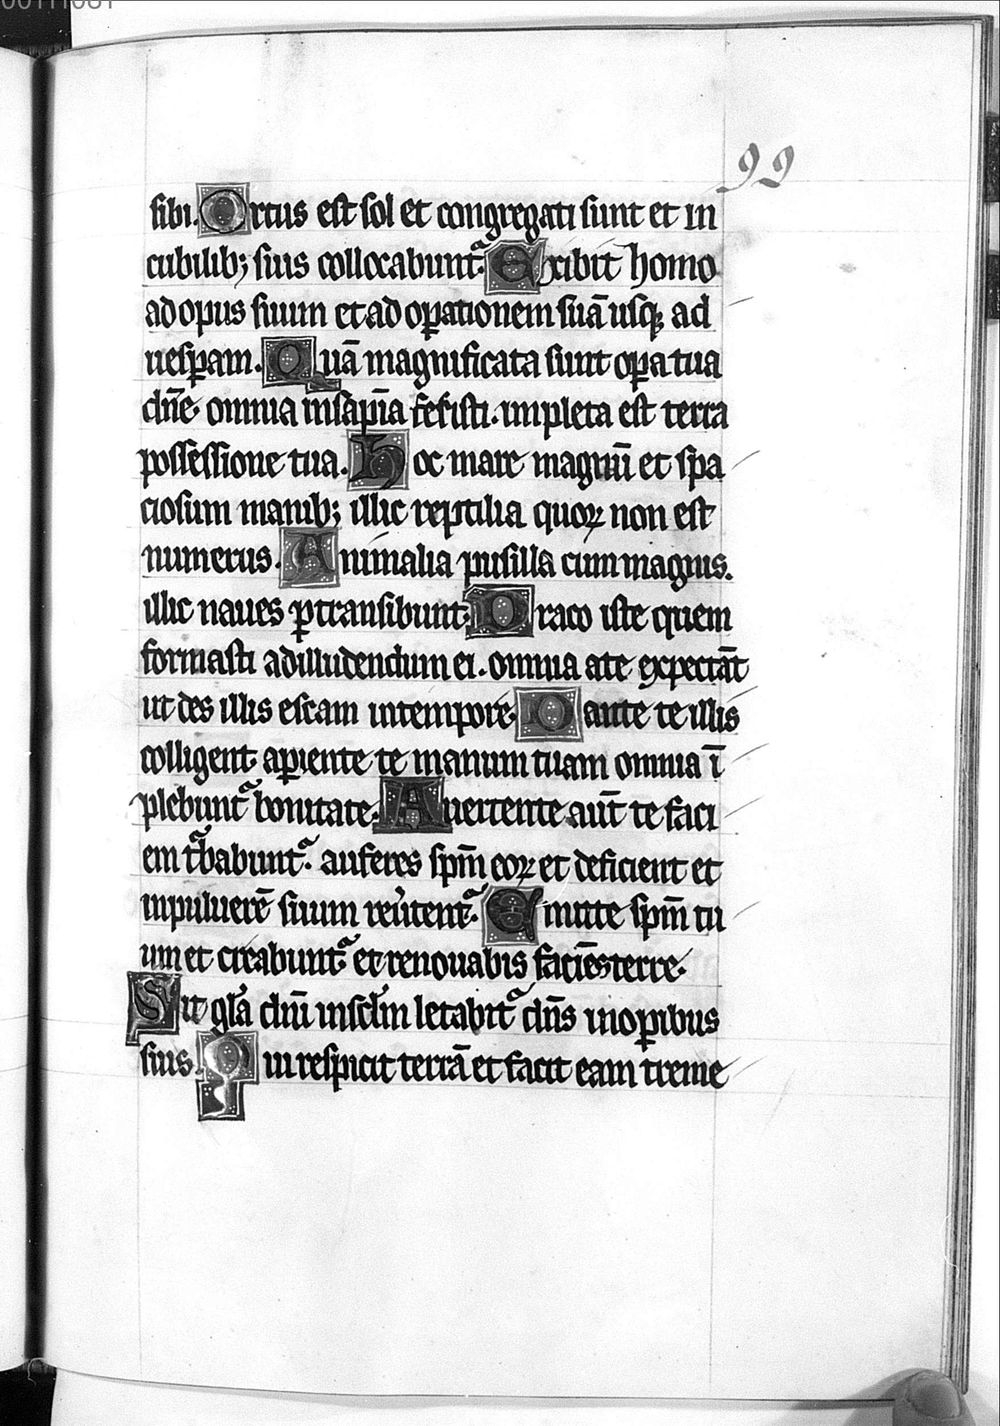 99
sibi. Ortus est sol et congregati sunt et in
cubilib; suis collocabunt᷑. Exibit homo
ad opus suum et ad oꝑationem suā usq; ad
uesꝑam. Quā magnificata sunt oꝑa tua
dn̄e. omnia in sapīa fecisti. impleta est terra
possessione tua. Hoc mare magnū et spa
ciosum manib; illic reptilia quoꝝ non est
numerus. Animalia pusilla cum magnis.
illic naues ꝑtransibunt; Draco iste quem
formasti ad illudendum ei. omnia a te expectāt
ut des illis escam in tempore. Dante te illis
colligent aꝑiente te manum tuam omnia ī
plebunt᷑ bonitate. Auertente aut̄ te faci
em t᷑babunt᷑. auferes sp̄m eoꝝ et deficient et
in puluerē suum reu̾tent᷑. Emitte sp̄m tu
um et creabunt᷑ et renouabis faciēs terre.
Sit gl̄a dn̄i in sc̄lm letabit᷑ dn̄s in oꝑibus
suis. Qui respicit terrā et facit eam treme